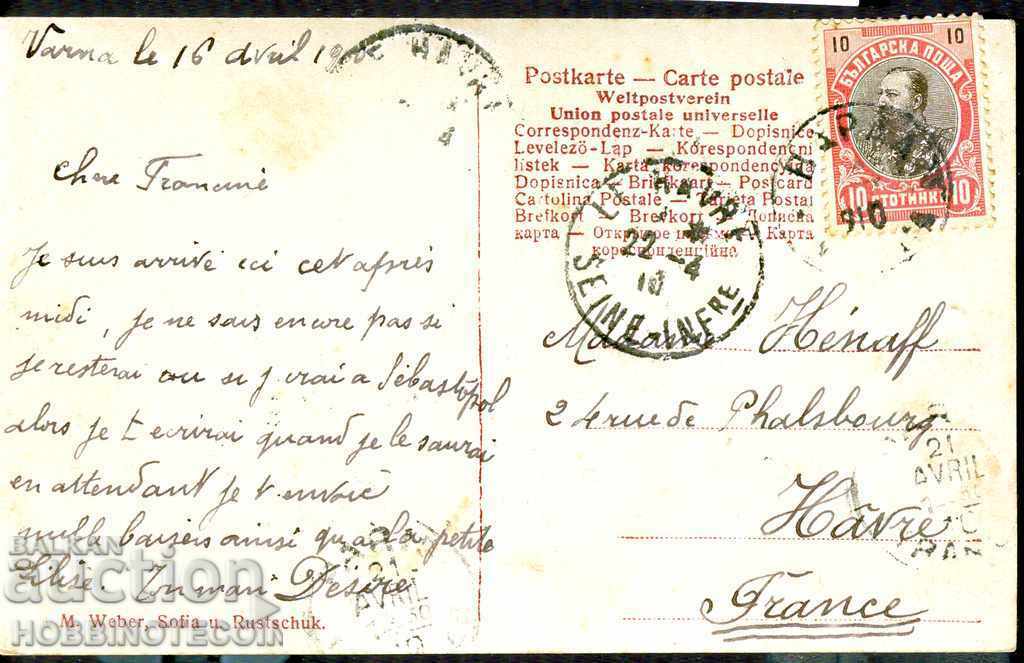 Varna le 16 avril 19
Chere Francine
Je suis arrivé ici cet après
midi, je ne sais encore pas si
je resterai ou si j irai a Sébastopol
alors je t ecrirai quand je le saurai
en attendant je t envoie
mille baisers ainsi qu a la petite
Elise. Ton mari Desire
M. Weber, Sofia u. Rustschuk.
Postkarte — Carte postale
Weltpostverein
Union postale universelle
Correspondenz-Karte — Dopisnice
Levelező-Lap — Korespondencni
listek — Karta korespondencyjna
Dopisnica — Briefkaart — Postcard
Cartolina Postale — Tarjeta Postal
Brefkort — Brevkort — Дописна
карта — Открытое письмо — Карта
корреспонденційна
10 10
БЪЛГАРСКА ПОЩА
10 СТОТИНКИ 10
ВАРНА
910
LE HAVRE
22 -4
10
SEINE-INFRE
Madame Hénaff
24 rue de Phalsbourg
Hâvre
France
LE HAVRE
4
21
AVRIL
21
AVRIL
BALKAN
auction
HOBBINOTECOIN